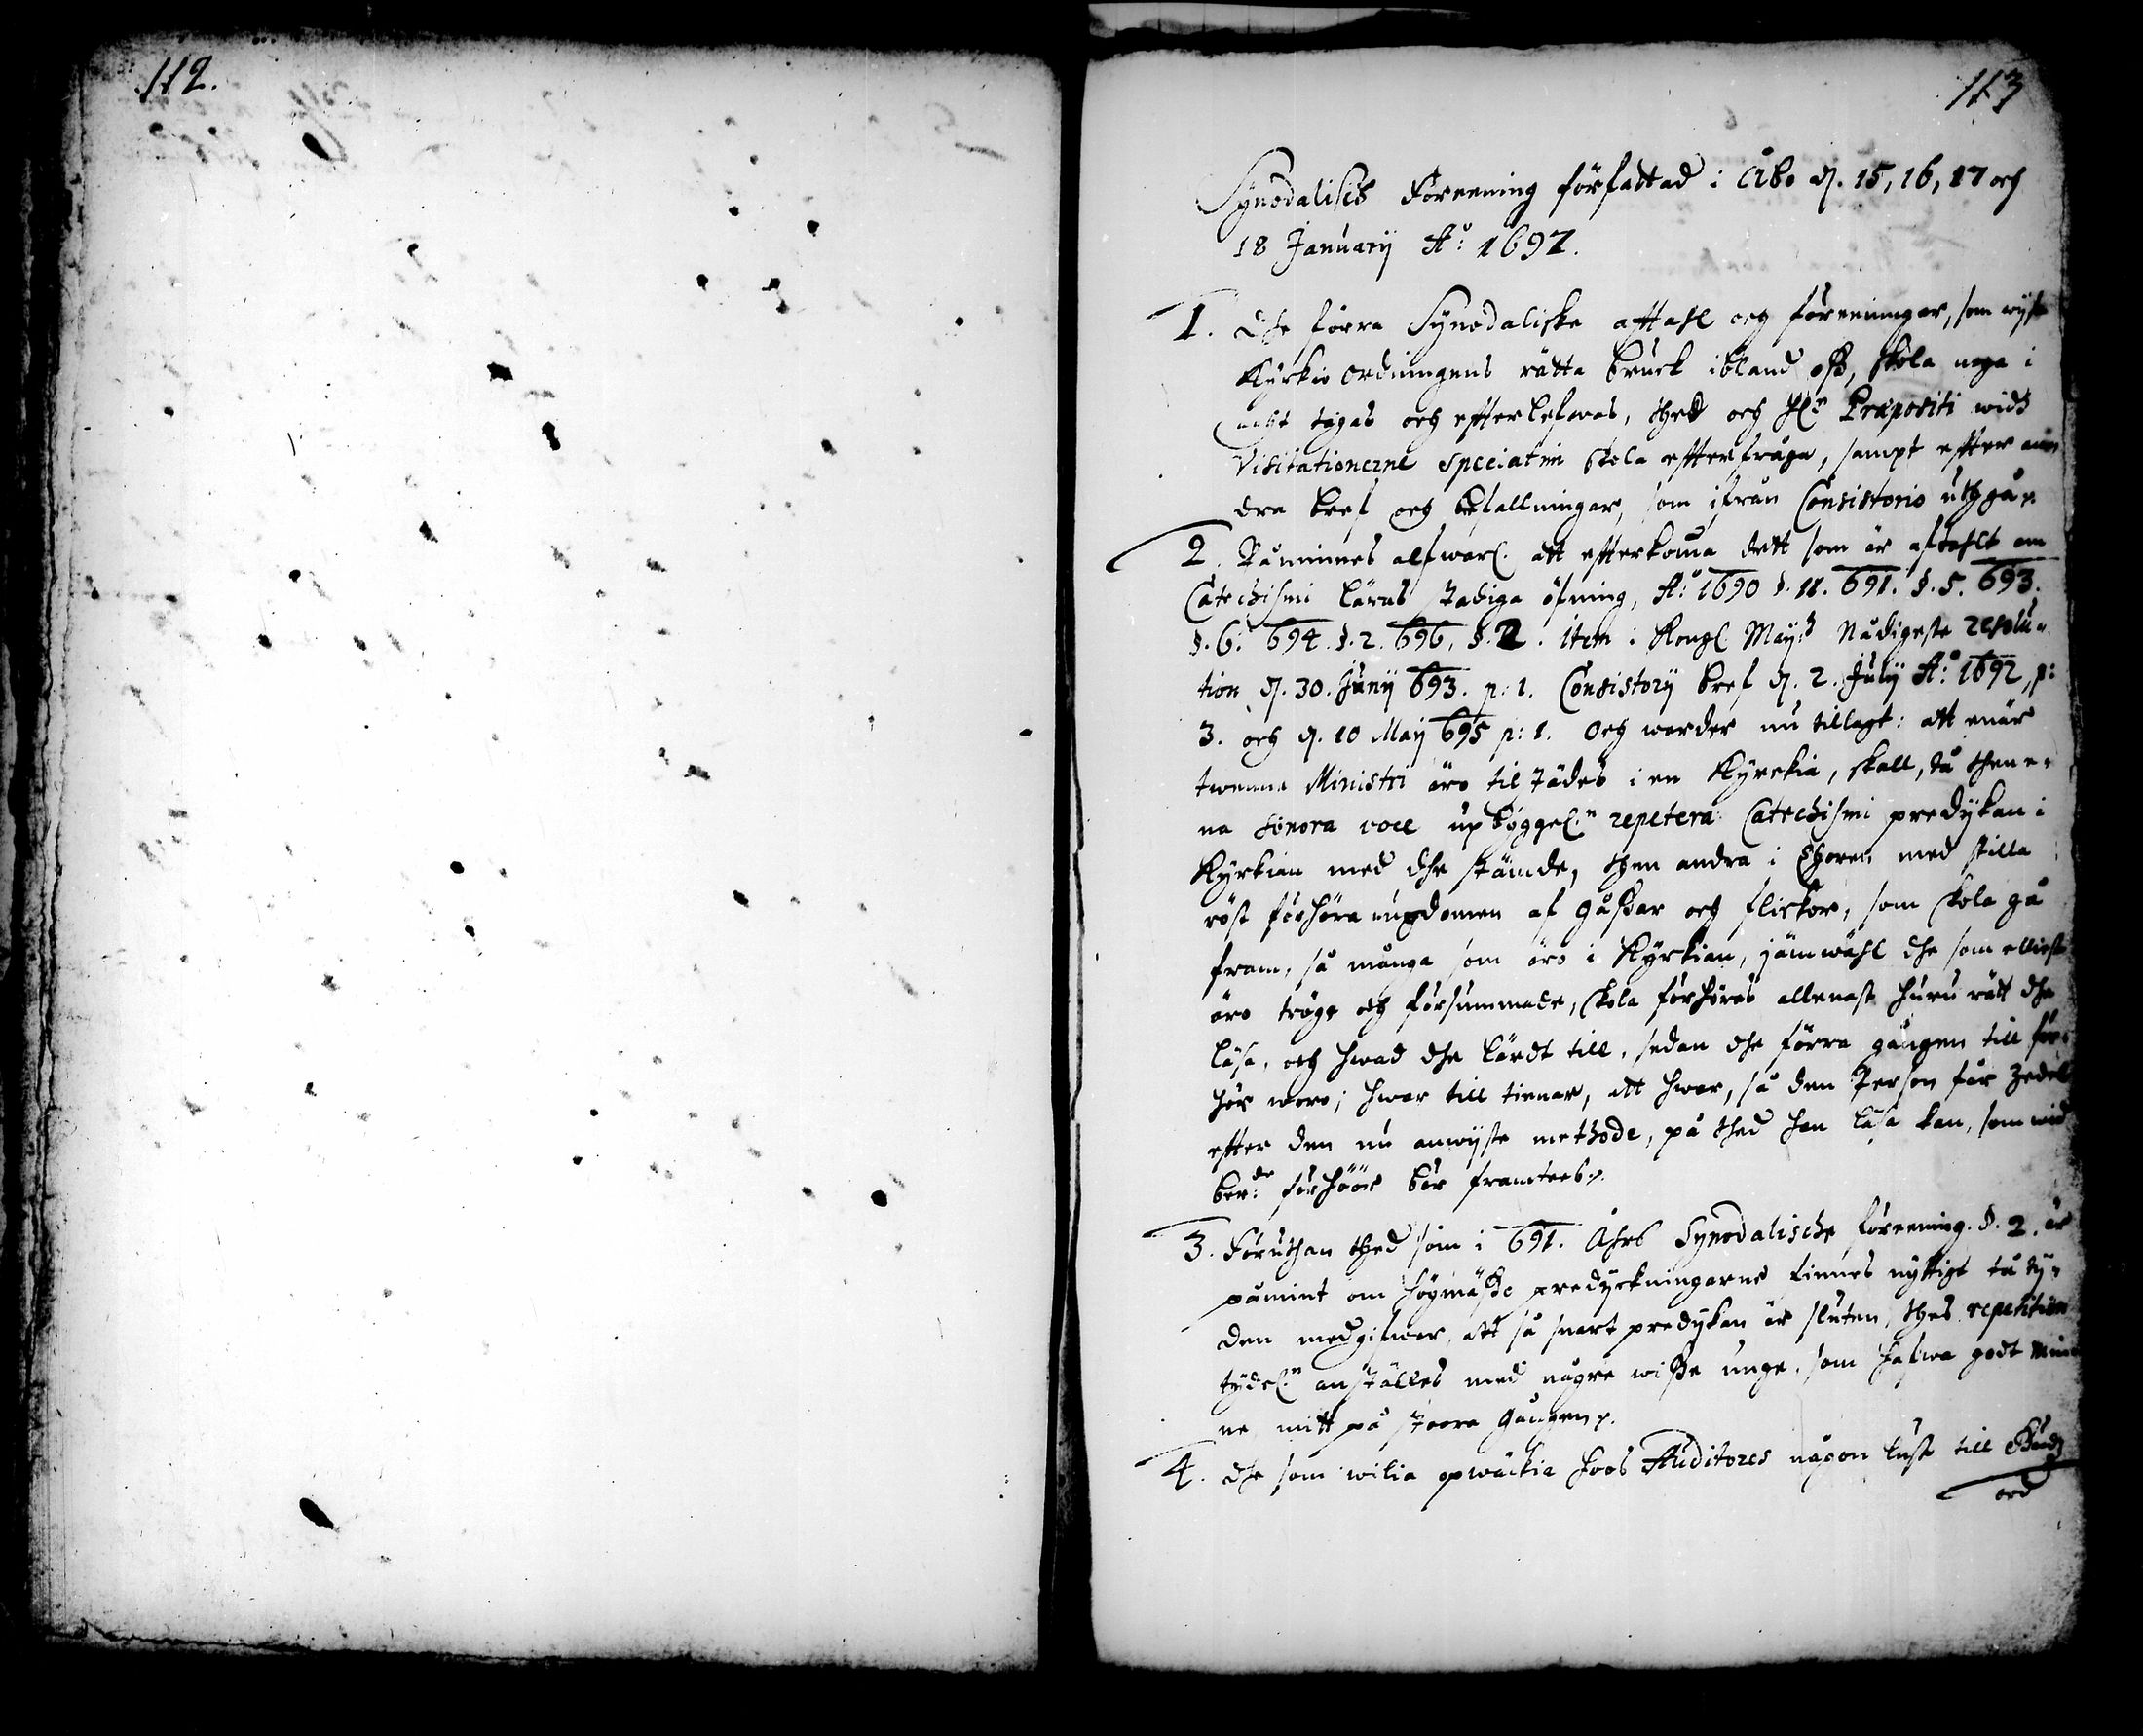 112.
113
Synodalisis Föreening författad i Åbo d. 15, 16, 17 och
18 January A:o 1697.
1. Dhe förra Synodaliske aftahl och föreeningar, som wysa
Kyrkio ordningens rätta bruck ibland oss, skola noga i
acht tagas och efterlefwas, thed och H:n Præpositi widh
Visitationerne speciatim skola efterfråga, sampt efter an
dra bref och befallningar, som ifrån Consistorio uthgå.
2. Påminnes alfwarl. att efterkomma dett som är aftahlt om
Catechismi läras stadiga öfning, A:o 1690 §. 11. 691. §. 5. 693.
§. 6. 694. §. 2. 696. §. 2. item i Kongl May:tz Nådigeste resolu-
tion d. 30. Juny 693. p: 1. Consistory bref d. 2. July A:o 1692, p:
3. och d. 10 May 695 p: 1. Och warder nu tillagt: att enär
twenne Ministri äro tilstädes i en Kyrckia, skall, då then e-
na sonora voce upbyggel:n repetera Catechismi predykan i
Kyrkian med dhe stämde, then andra i Choren med stilla
röst förhöra ungdomen af gåssar och flickor, som skola gå
fram, så många som äro i Kyrkian, jämwähl dhe som elliest
äro tröge och försummade, skola förhöras allenast huru rätt dhe
läsa, och hwad dhe lärdt till, sedan dhe förra gången till för-
hör woro; hwar till tienar, att hwar, så den Person får zedel
efter den nu anwyste methode, på thed han läsa kan, som wid
ber:de förhöör bör framtees.
3. Föruthan thed som i 691. Åhrs Synodalische föreening. §. 2. är
påmint om högmässe predyckningarne finnes nyttigt tå ty-
den medgifwer, att så snart predykan är sluten, thes repetition
tydel:n anställes med någre wisse unge, som hafwa godt min
ne mitt på stoora gången.
4. Dhe som wilia opwäckia hoos Auditores någon lust till Gudz
ord